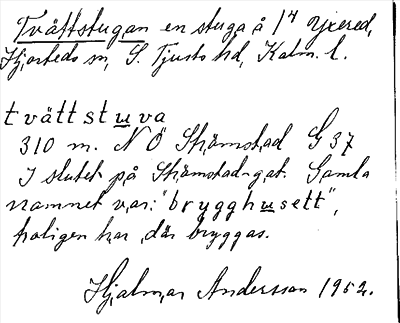 Tvättstugan en stuga å 1⁴ Yxered,
Hjorteds sn, S. Tjusts hd, Kalm. l.
tvättstuva
310 m. NÖ Strömstad G 37
I slutet på Strömstad-gat. Gamla
namnet var: "brygghusett",
troligen har där bryggas.
Hjalmar Andersson 1952.